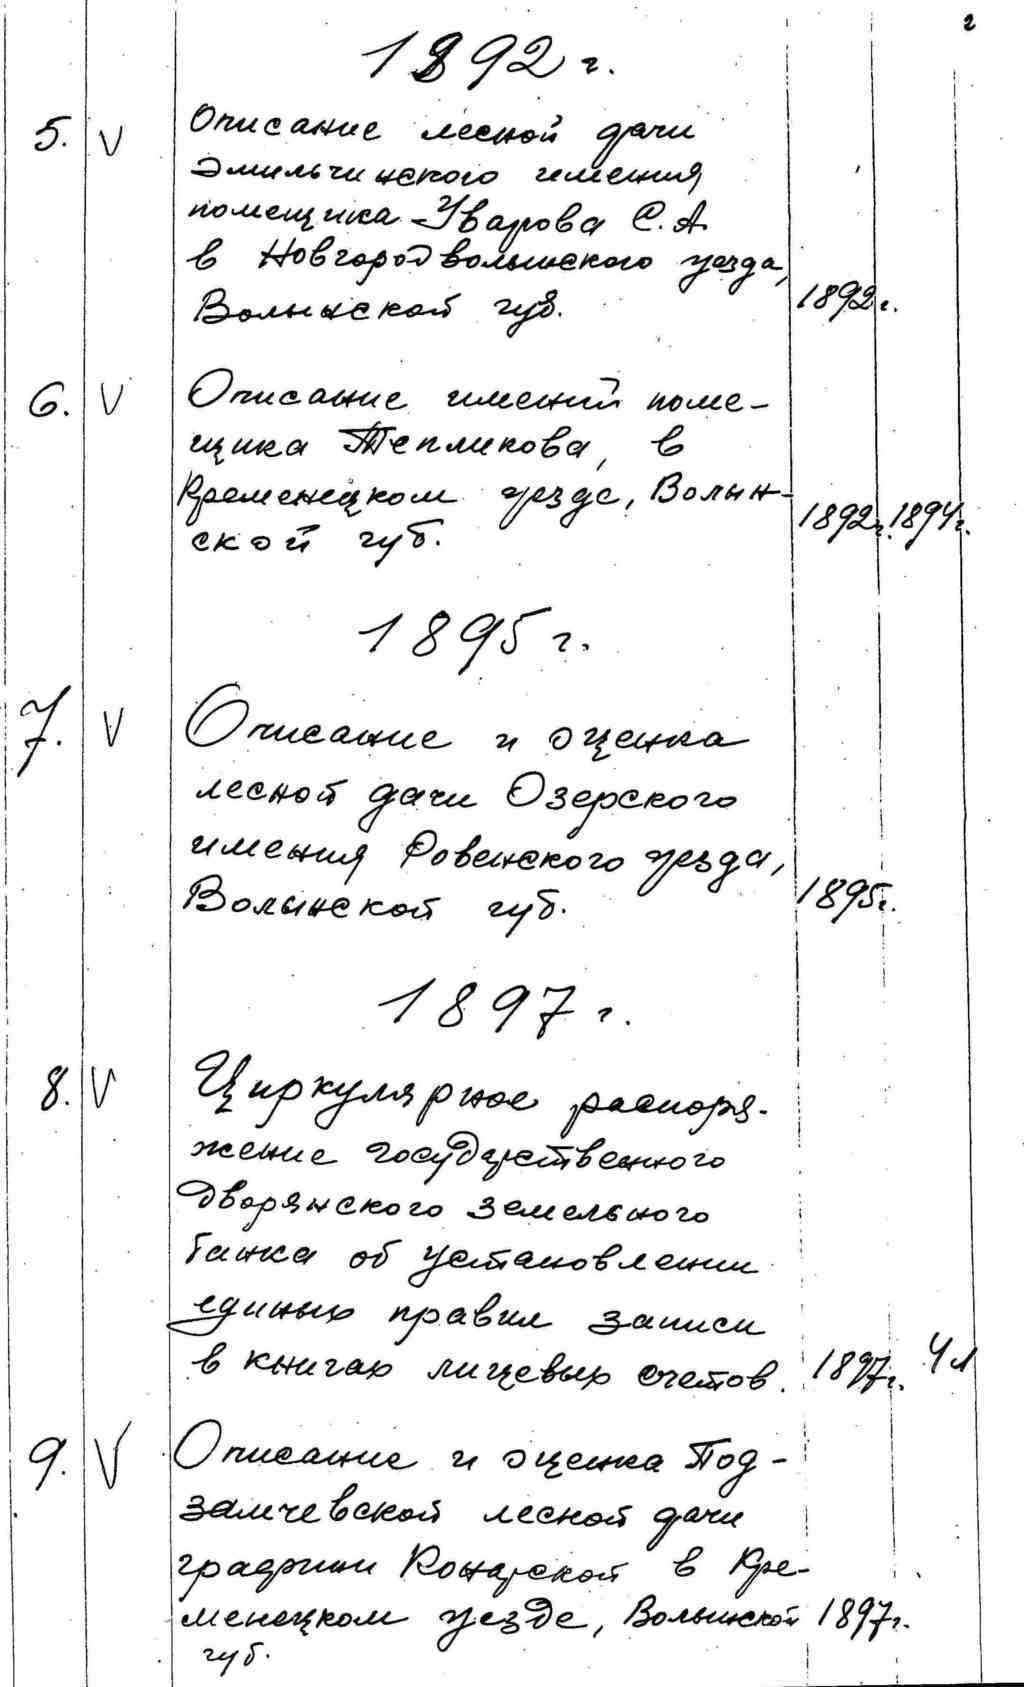 2
1892 г.
5. V Описание лесной дачи
Эмильчинского имения
помещика Уварова С.А.
в Новгородволынского уезда,
Волынской губ. 1892 г.
6. V Описание имений поме-
щика Тепликова, в
Кременецком уезде, Волын-
ской губ. 1892 г. 1894 г.
1895 г.
7. V Описание и оценка
лесной дачи Озерского
имения Ровенского уезда,
Волынской губ. 1895 г.
1897 г.
8. V Циркулярное распоря-
жение государственного
дворянского земельного
банка об установлении
единых правил записи
в книгах лицевых счетов. 1897 г. 4 л
9. V Описание и оценка Под-
замчевской лесной дачи
графини Конарской в Кре-
менецком уезде, Волынской 1897 г.
губ.